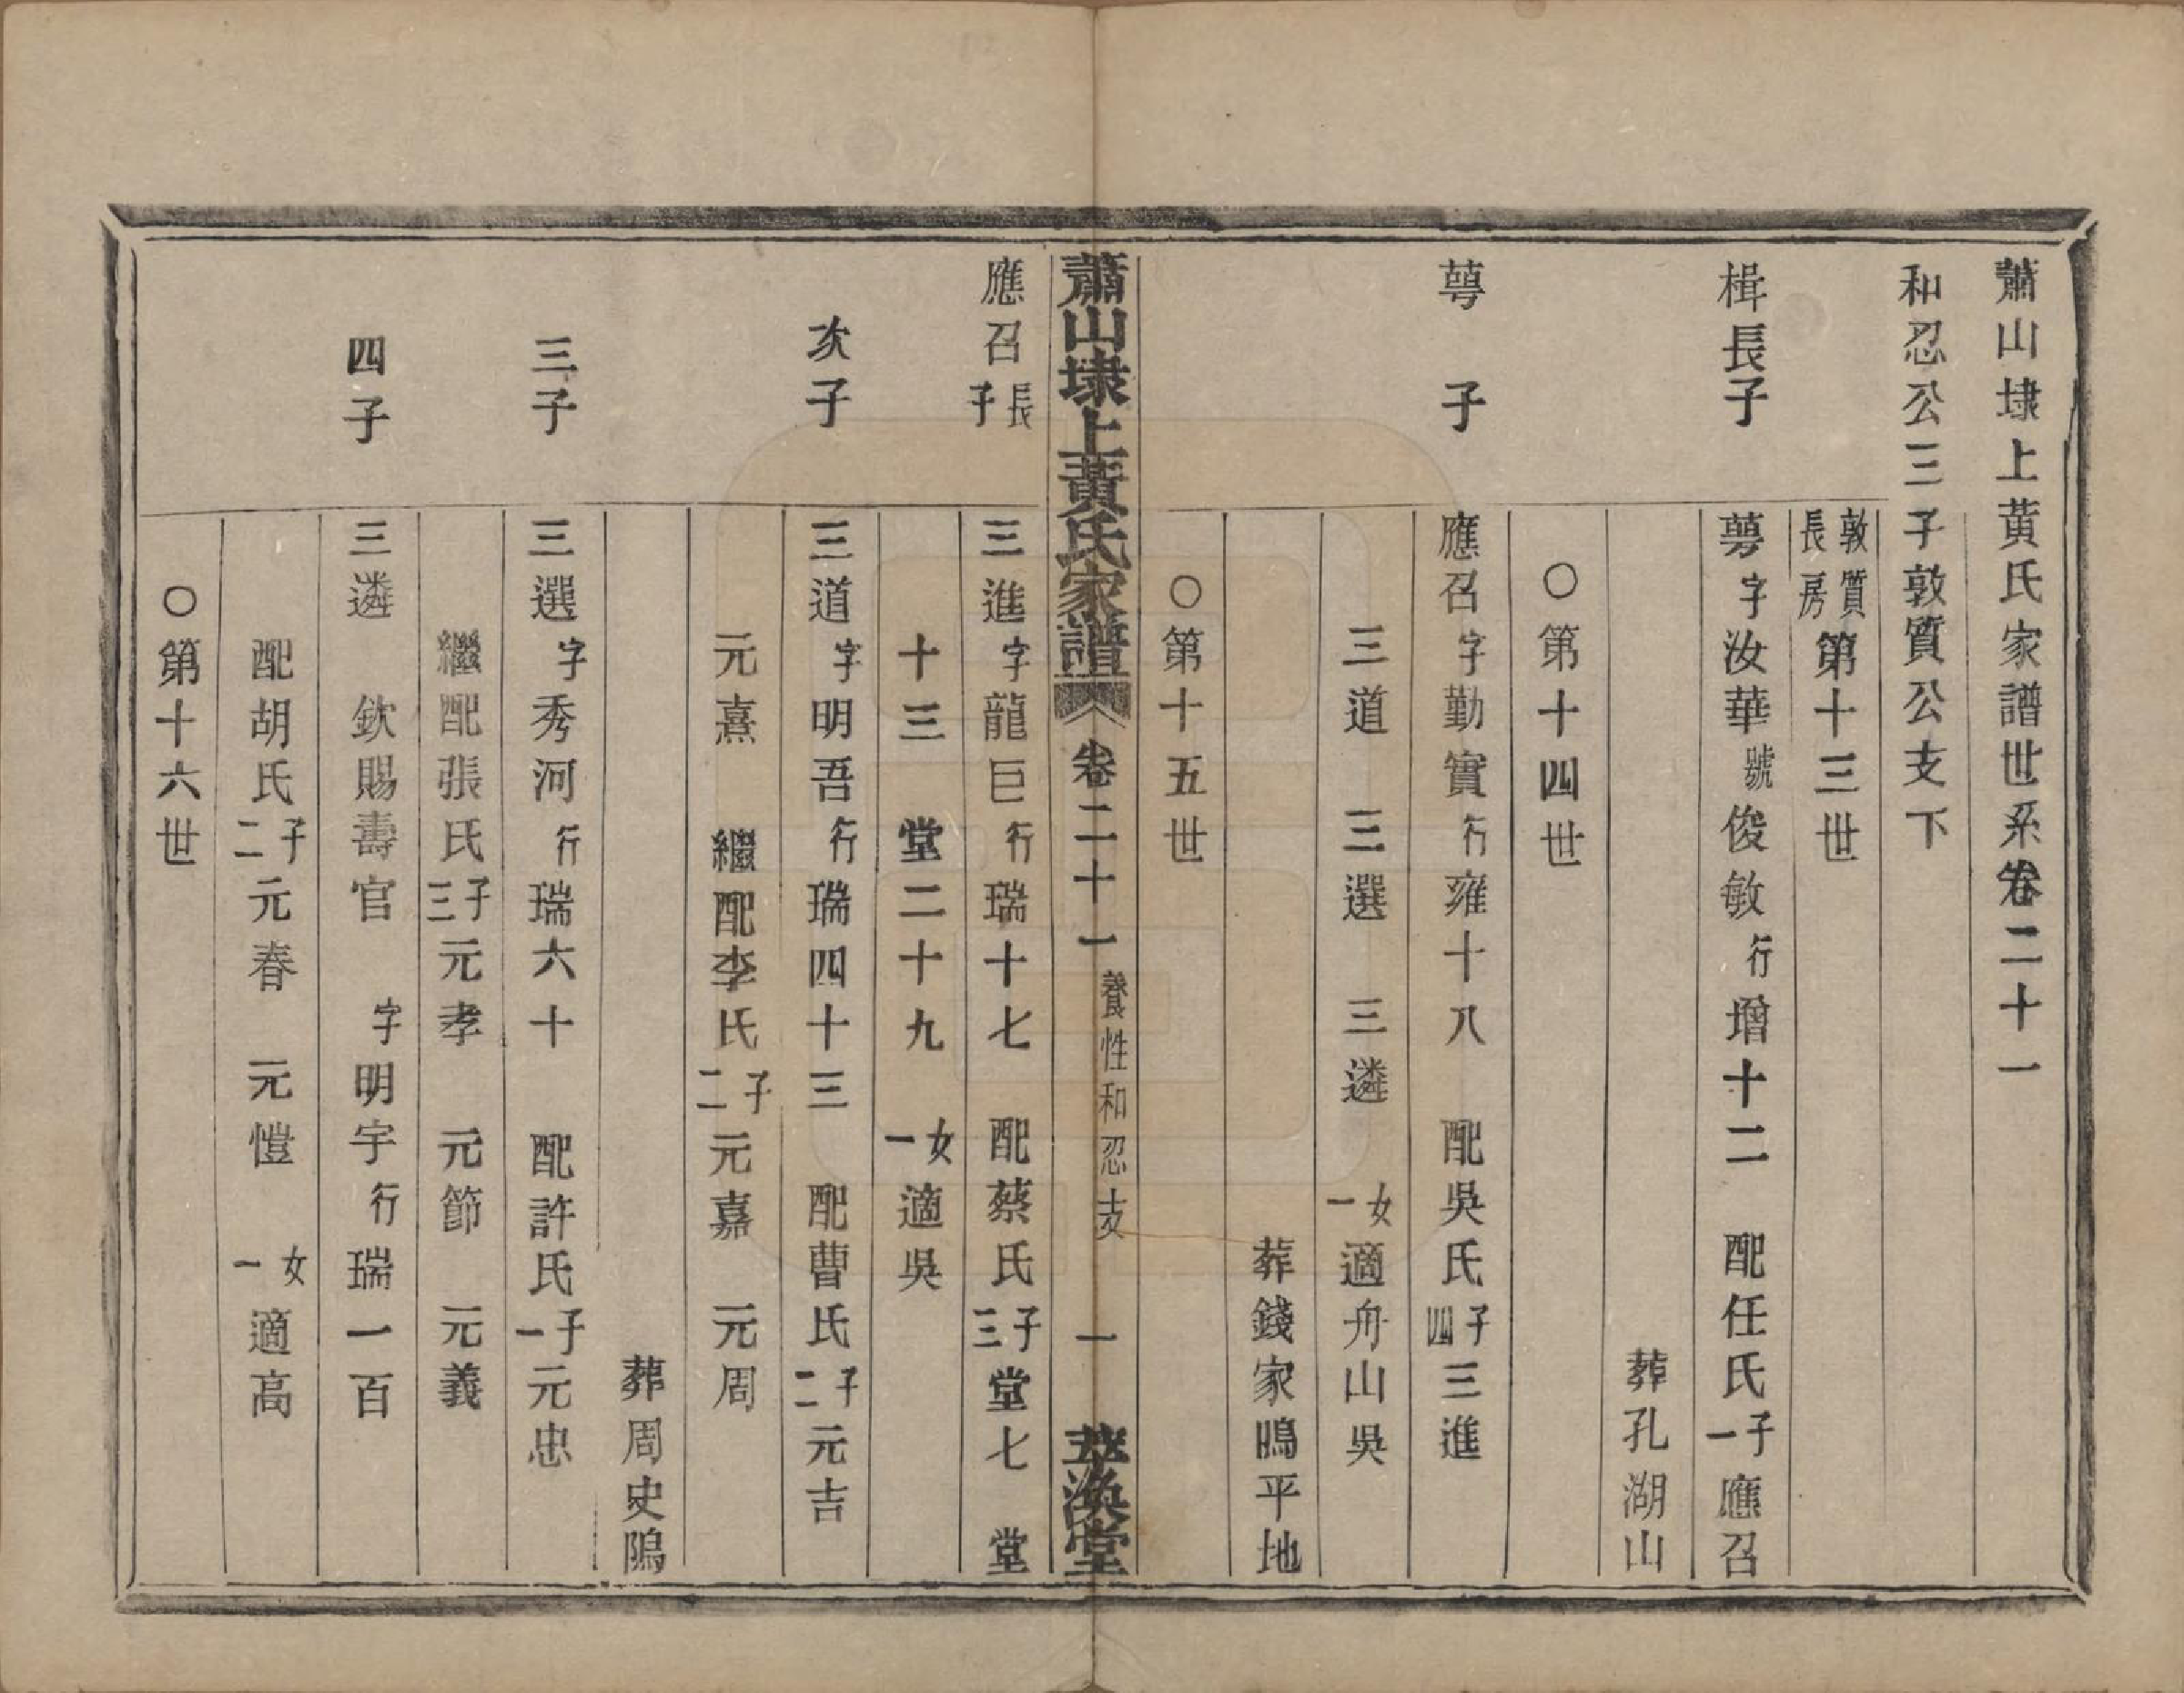 蕭山埭上黃氏家譜世系卷二十一
和忍公三子敦質公支下
敦質長房第十三世
楫長子
萼字汝華號俊敏行增十二 配任氏子一應召
葬孔湖山
○第十四世
萼子
應召字勤實行雍十八 配吳氏子四三進
三道 三選 三遴 女一適舟山吳
葬錢家鴫平地
○第十五世
蕭山埭上黃氏家譜 卷二十一 養性和忍支 一 萃渙堂
應召長子
三進字龍巨行瑞十七 配蔡氏子三堂七 堂
十三 堂二十九 女一適吳
次子
三道字明吾行瑞四十三 配曹氏子二元吉
元熹 繼配李氏子二元嘉 元周
葬周史隝
三子
三選字秀河行瑞六十 配許氏子一元忠
繼配張氏子三元孝 元節 元義
四子
三遴 欽賜壽官 字明宇行瑞一百
配胡氏子二元春 元愷 女一適高
○第十六世